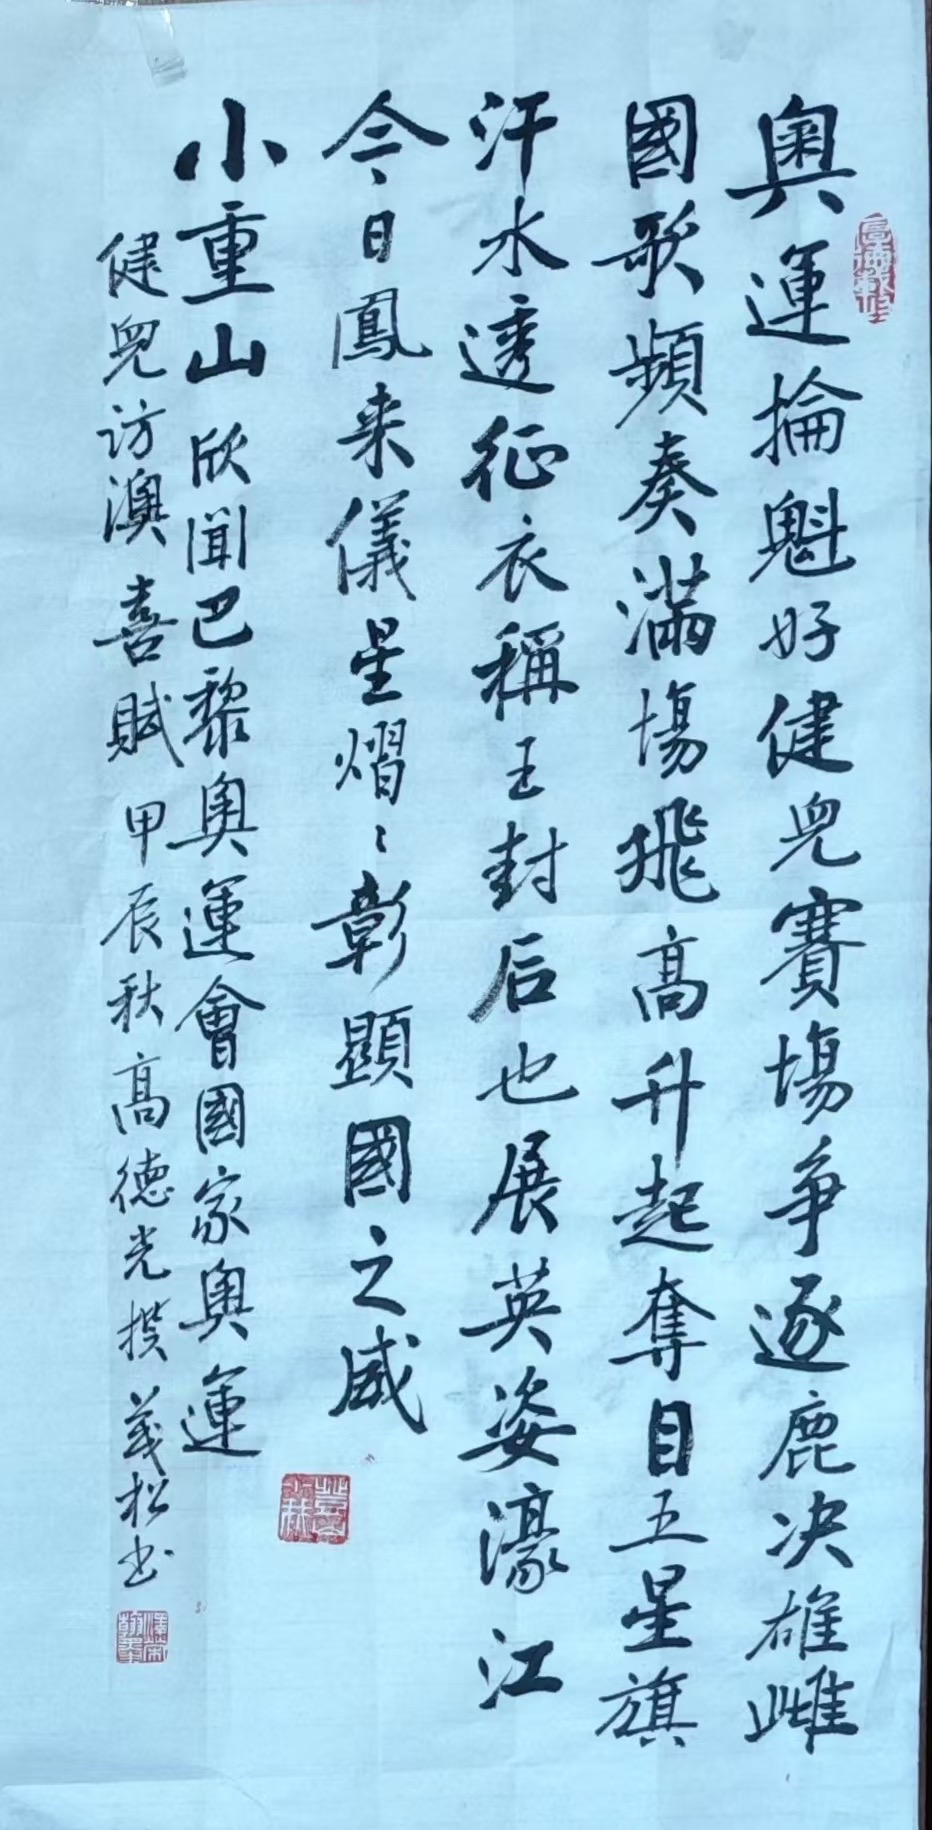 奧運掄魁好健兒賽場爭逐鹿决雄雌
國歌頻奏滿場飛高升起奪目五星旗
汗水透征衣稱王封后也展英姿濠江
今今日鳳来儀星熠熠彰顯國之威
小重山欣聞巴黎奧運會國家奧運
健兒访澳喜賦甲辰秋高德光撰義松书
厚德載物